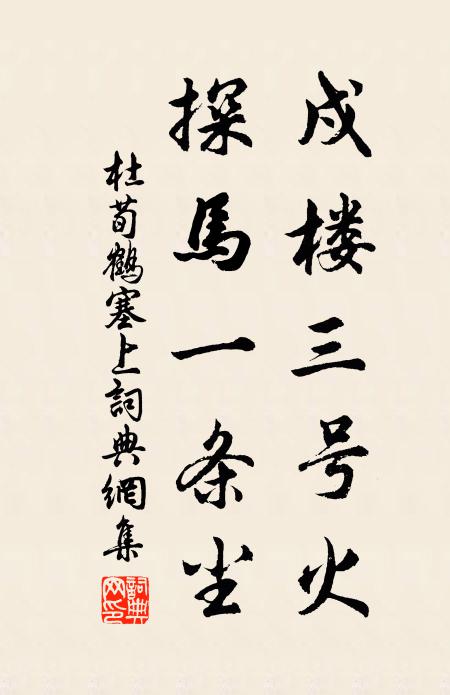 戍楼三号火
探馬一条尘
杜荀鶴塞上詞典網集
詞典網印